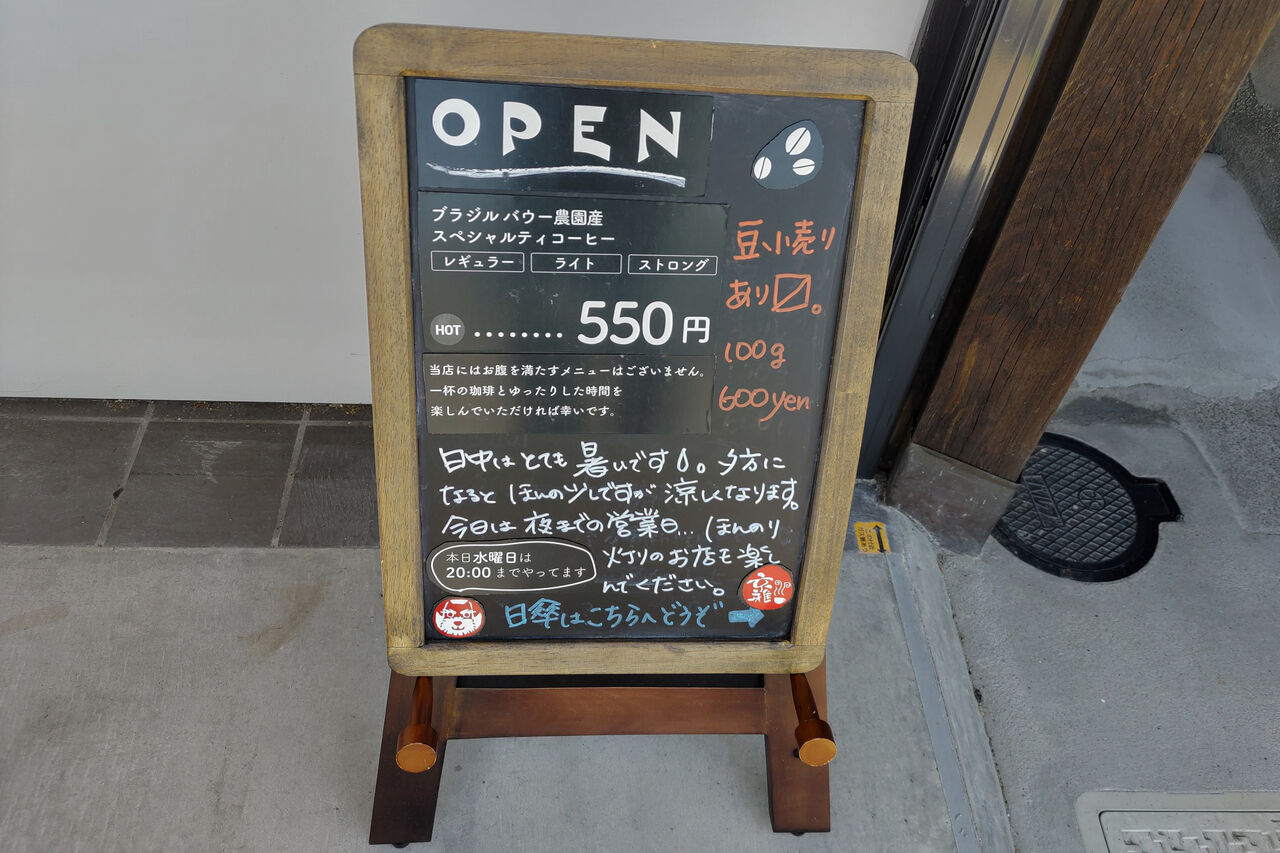 OPEN
ブラジル バウー農園産
スペシャルティコーヒー
レギュラー ライト ストロング
HOT ........ 550円
当店にはお腹を満たすメニューはございません。
一杯の珈琲とゆったりした時間を
楽しんでいただければ幸いです。
豆、小売り
あり〼。
100g
600yen
日中はとても暑いです。夕方に
なると ほんの少しですが 涼しくなります。
今日は 夜までの営業日…ほんのり
灯りのお店を楽し
んでください。
本日水曜日は
20:00 までやってます
日傘はこちらへどうぞ